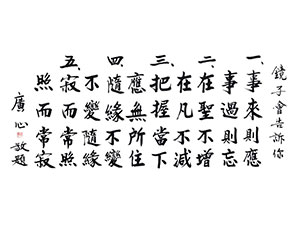 鏡子會告訴你
一、事來則應
事過則忘
二、在聖不增
在凡不減
三、把握當下
應無所住
四、隨緣不變
不變隨緣
五、寂而常照
照而常寂
廣心敬題